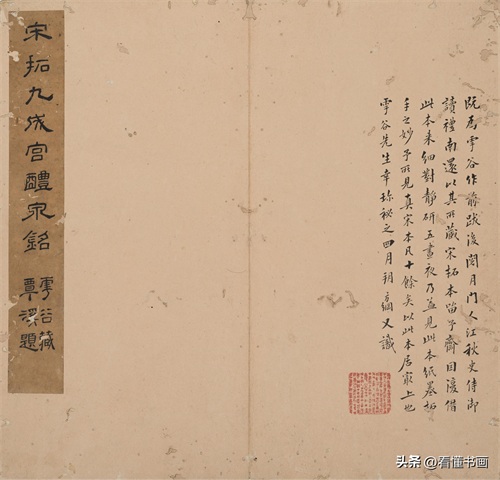 既爲雩谷作前跋後閱月門人江秋史侍御
讀禮南還以其所藏宋拓本留予齋因復借
此本來細對靜研五晝夜乃益見此本紙墨拓
手之妙予所見真宋本凡十餘矣以此本居最上也
雩谷先生幸珍祕之四月朔綱又識
宋拓九成宮醴泉銘
雩谷藏
覃溪題
头条 @看懂书画